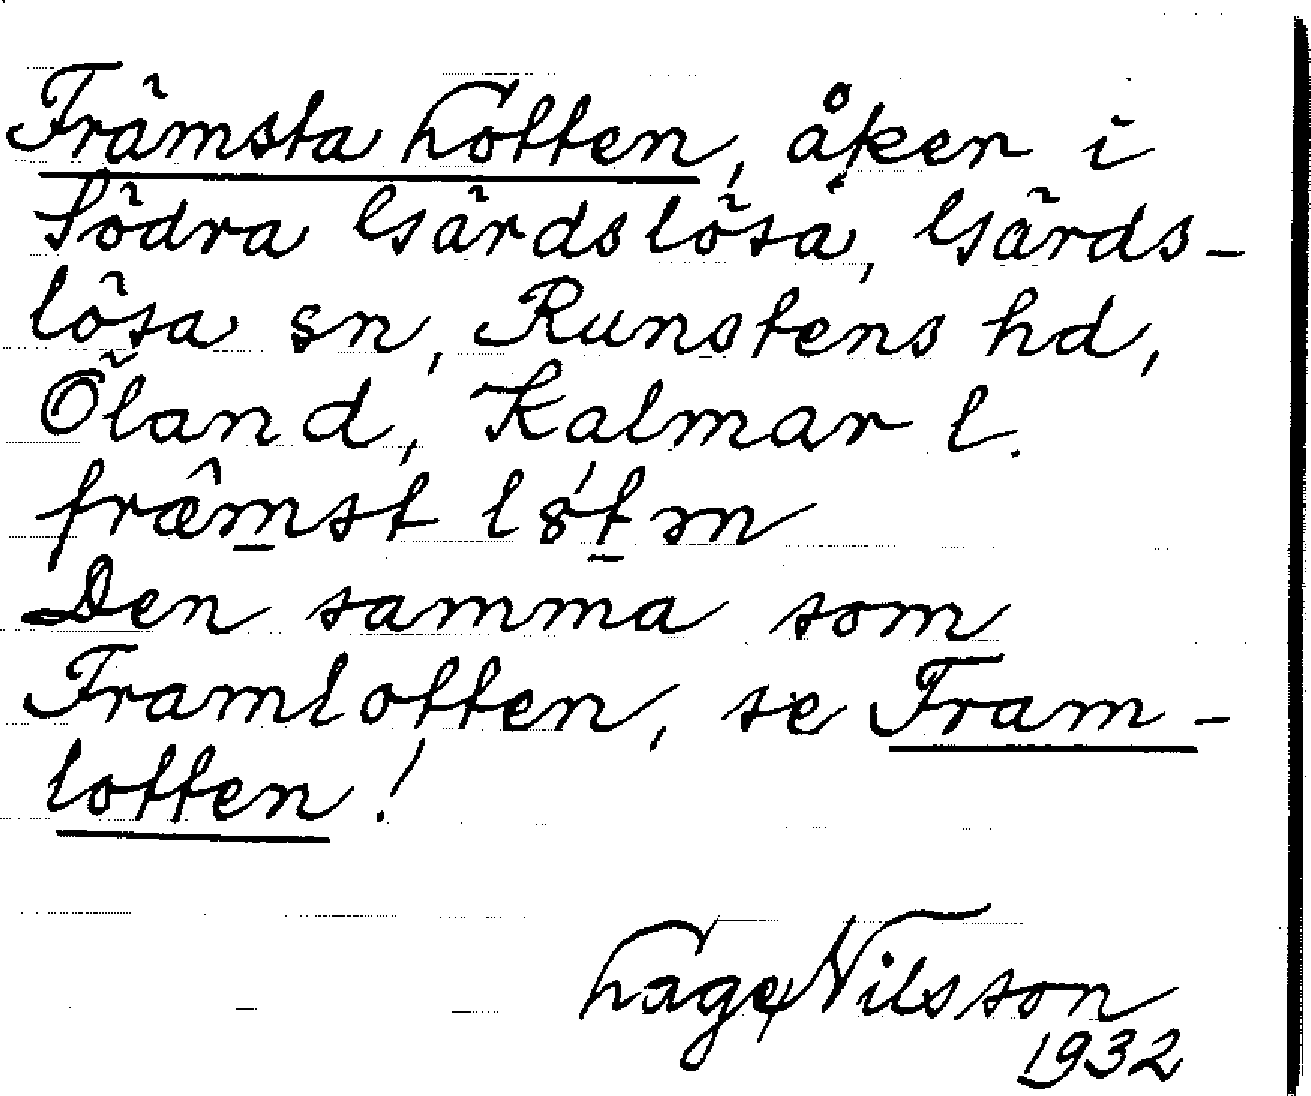 Främsta Lotten, åker i
Södra Gärdslösa, Gärds-
lösa sn, Runstens hd,
Öland, Kalmar l.
Den samma som
Framlotten, se Fram-
lotten!
Lage Nilsson
1932